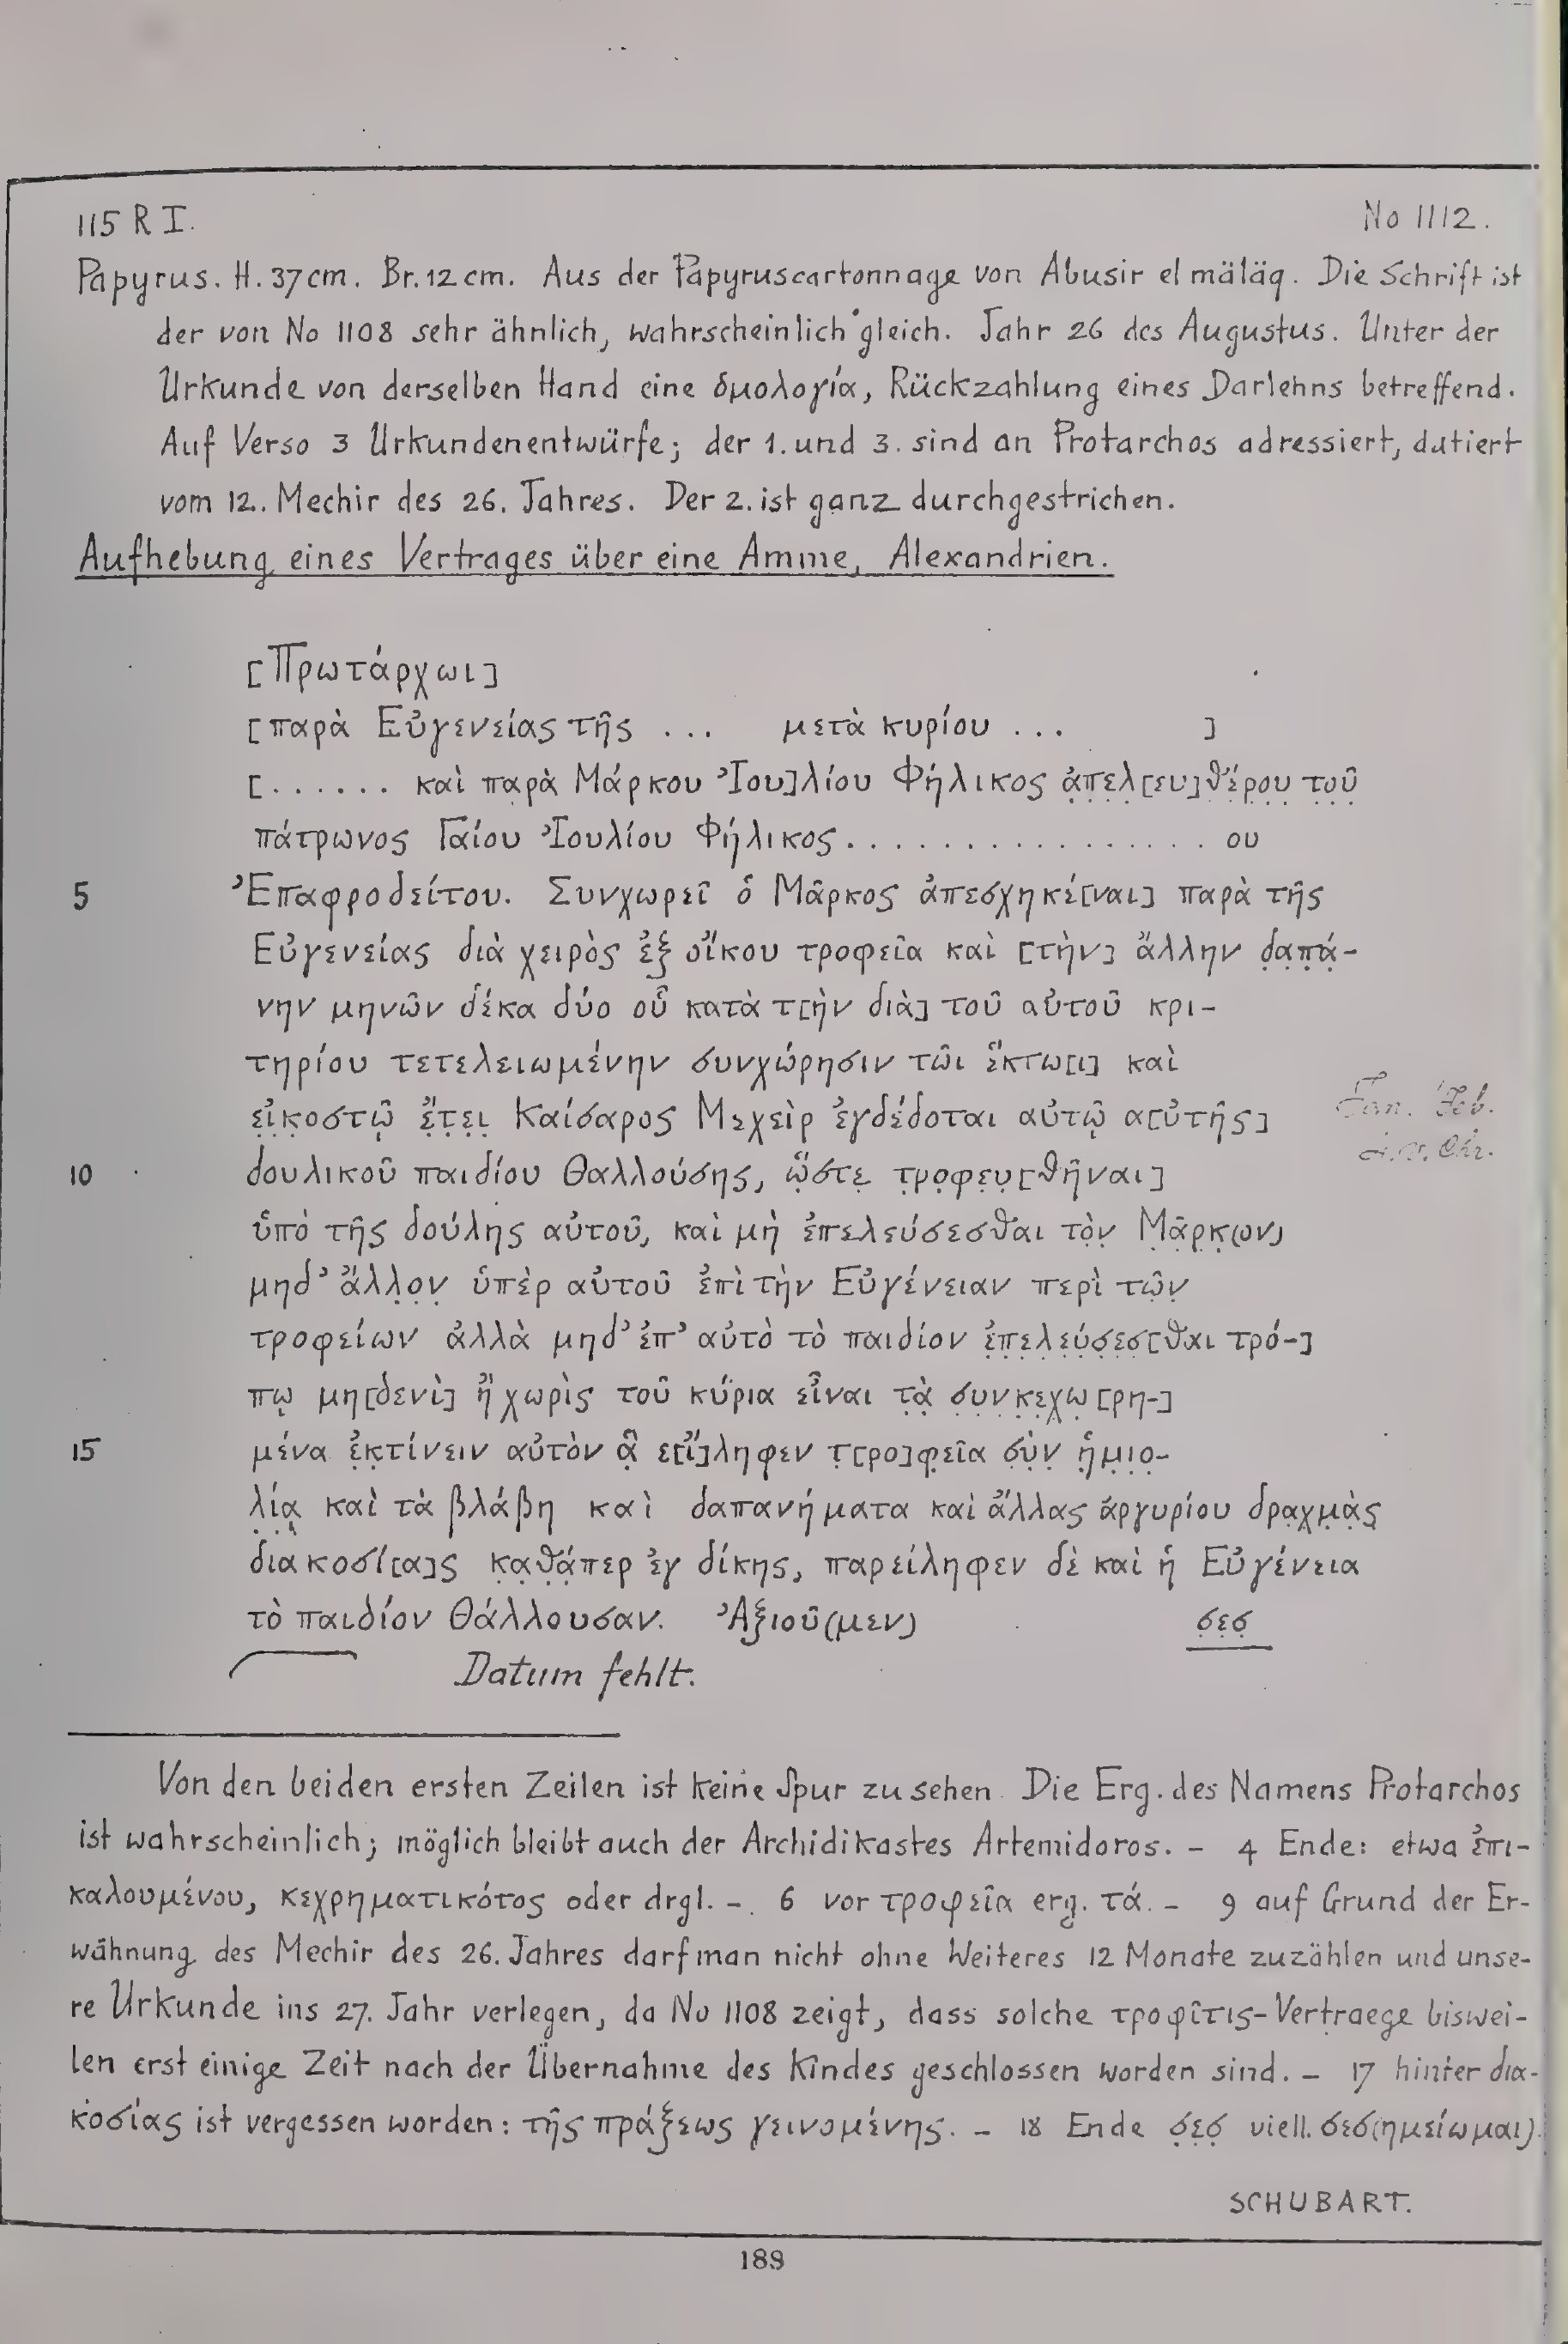 115 R I. No 1112.
Papyrus. H. 37cm. Br. 12cm. Aus der Papyruscartonnage von Abusir el mäläq. Die Schrift ist
der von No 1108 sehr ähnlich, wahrscheinlich gleich. Jahr 26 des Augustus. Unter der
Urkunde von derselben Hand eine ὁμολογία, Rückzahlung eines Darlehns betreffend.
Auf Verso 3 Urkundenentwürfe; der 1. und 3. sind an Protarchos adressiert, datiert
vom 12. Mechir des 26. Jahres. Der 2. ist ganz durchgestrichen.
Aufhebung eines Vertrages über eine Amme, Alexandrien.
[Πρωτάρχωι]
[παρὰ Εὐγενείας τῆς ... μετὰ κυρίου ... ]
[...... καὶ παρὰ Μάρκου Ἰου]λίου Φήλικος ἀ̣π̣ε̣λ̣[ευ]θ̣έ̣ρ̣ο̣υ̣ τ̣ο̣ῦ̣
πάτρωνος Γαίου Ἰουλίου Φήλικος................. ου
5 Ἐπαφροδείτου. Συνχωρεῖ ὁ Μᾶρκος ἀπεσχηκέ[ναι] παρὰ τῆς
Εὐγενείας διὰ χειρὸς ἐξ οἴκου τροφεῖα καὶ [τὴν] ἄλλην δ̣α̣π̣ά̣-
νην μηνῶν δέκα δύο οὗ κατὰ τ[ὴν διὰ] τοῦ αὐτοῦ κρι-
τηρίου τετελειωμένην συνχώρησιν τῶι ἕκτω[ι] καὶ
ε̣ἰ̣κ̣οστῷ̣ ἔ̣τ̣ε̣ι̣ Καίσαρος Μεχεὶρ ἐγδέδοται αὐτῷ α[ὐτῆς]
Jan. Feb.
10 δουλικοῦ παιδίου Θαλλούσης, ὥ̣στε̣ τ̣ρ̣ο̣φ̣ε̣υ̣[θῆναι]
ὑπὸ τῆς δούλης αὐτοῦ, καὶ μὴ ἐπελεύσεσθαι τὸ̣ν̣ Μ̣ᾶ̣ρ̣κ̣(ον)
μηδ’ ἄλλ̣ο̣ν̣ ὑπὲρ αὐτοῦ ἐπὶ τὴν Εὐγένειαν περὶ τῶ̣ν̣
τροφείων ἀλλὰ μηδ’ ἐπ’ αὐτὸ τὸ παιδίον ἐ̣π̣ε̣λ̣ε̣ύ̣σ̣ε̣σ̣[θαι τρό-]
πῳ μη[δενὶ] ἢ χωρὶς τοῦ κύρια εἶναι τ̣ὰ̣ σ̣υ̣ν̣κ̣ε̣χ̣ω̣[ρη-]
15 μένα ἐ̣κ̣τίνειν αὐτὸν ἃ̣ ε[ἴ]ληφεν τ̣[ρο]φ̣εῖα σ̣ὺ̣ν̣ ἡ̣μ̣ι̣ο̣-
λ̣ί̣ᾳ̣ καὶ τὰ βλάβη καὶ δαπανήματα καὶ ἄλλας ἀργυρίου δρα̣χ̣μ̣ὰ̣ς̣
διακοσί[α]ς κ̣α̣θ̣ά̣περ ἐγ δίκης, παρείληφεν δὲ καὶ ἡ Εὐγένεια
τὸ παιδίον Θάλλουσαν. Ἀξιοῦ(μεν) σ̣ε̣σ̣
Datum fehlt.
Von den beiden ersten Zeilen ist keine Spur zu sehen. Die Erg. des Namens Protarchos
ist wahrscheinlich; möglich bleibt auch der Archidikastes Artemidoros. – 4 Ende: etwa ἐπι-
καλουμένου, κεχρηματικότος oder drgl. –. 6 vor τροφεῖα erg. τά. – 9 auf Grund der Er-
wähnung des Mechir des 26. Jahres darf man nicht ohne Weiteres 12 Monate zuzählen und unse-
re Urkunde ins 27. Jahr verlegen, da No 1108 zeigt, dass solche τροφῖτις-Vertraege biswei-
len erst einige Zeit nach der Übernahme des Kindes geschlossen worden sind. – 17 hinter δια-
κοσίας ist vergessen worden: τῆς πράξεως γεινομένης. – 18 Ende σ̣ε̣σ̣ viell. σεσ(ημείωμαι).
SCHUBART.
189